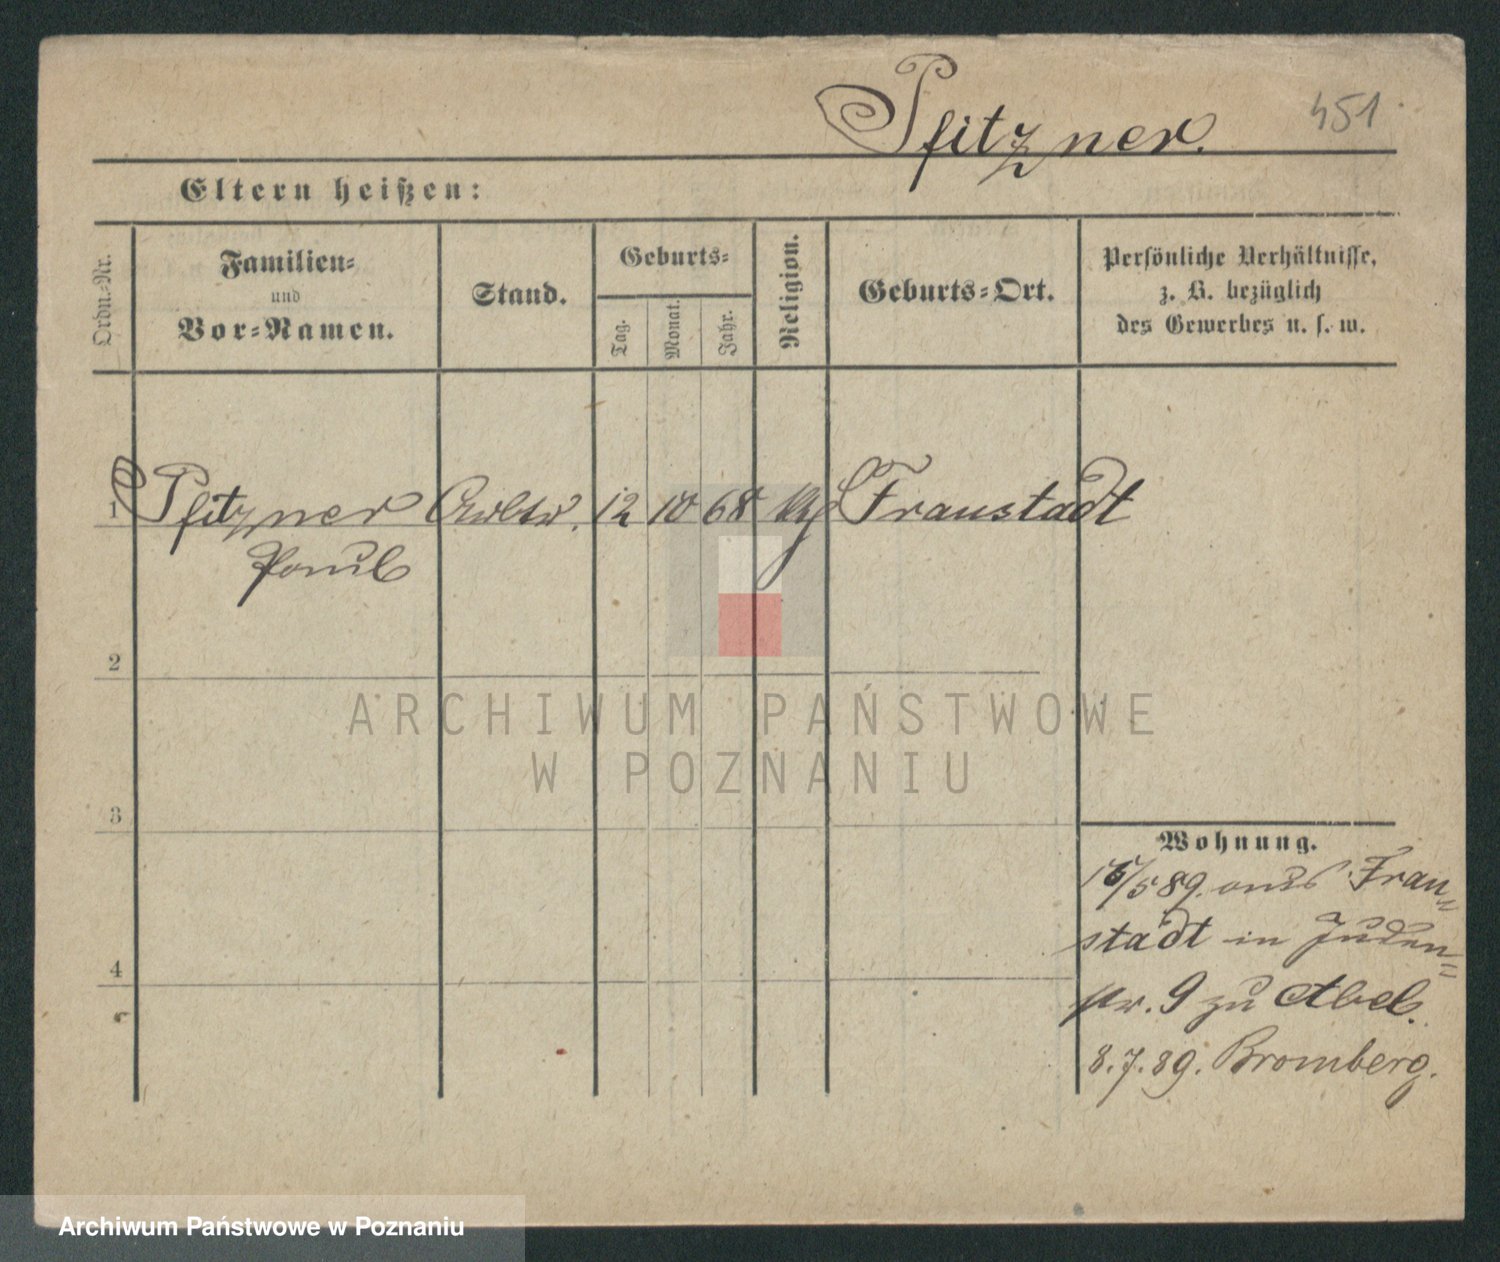 Pfitzner.
451
Eltern heißen:
Ordn.-Nr.
Familien-
und
Vor-Namen.
Stand.
Geburts-
Tag.
Monat.
Jahr.
Religion.
Geburts-Ort.
Persönliche Verhältnisse,
z. B. bezüglich
des Gewerbes u. s. w.
1 Pfitzner 12 10 68 Fraustadt
Paul
2
ARCHIWUM PAŃSTWOWE
W POZNANIU
3
Wohnung.
/5 89. aus Frau-
stadt in Juden-
str. 9 zu Abel.
4
8.7.89. Bromberg.
Archiwum Państwowe w Poznaniu